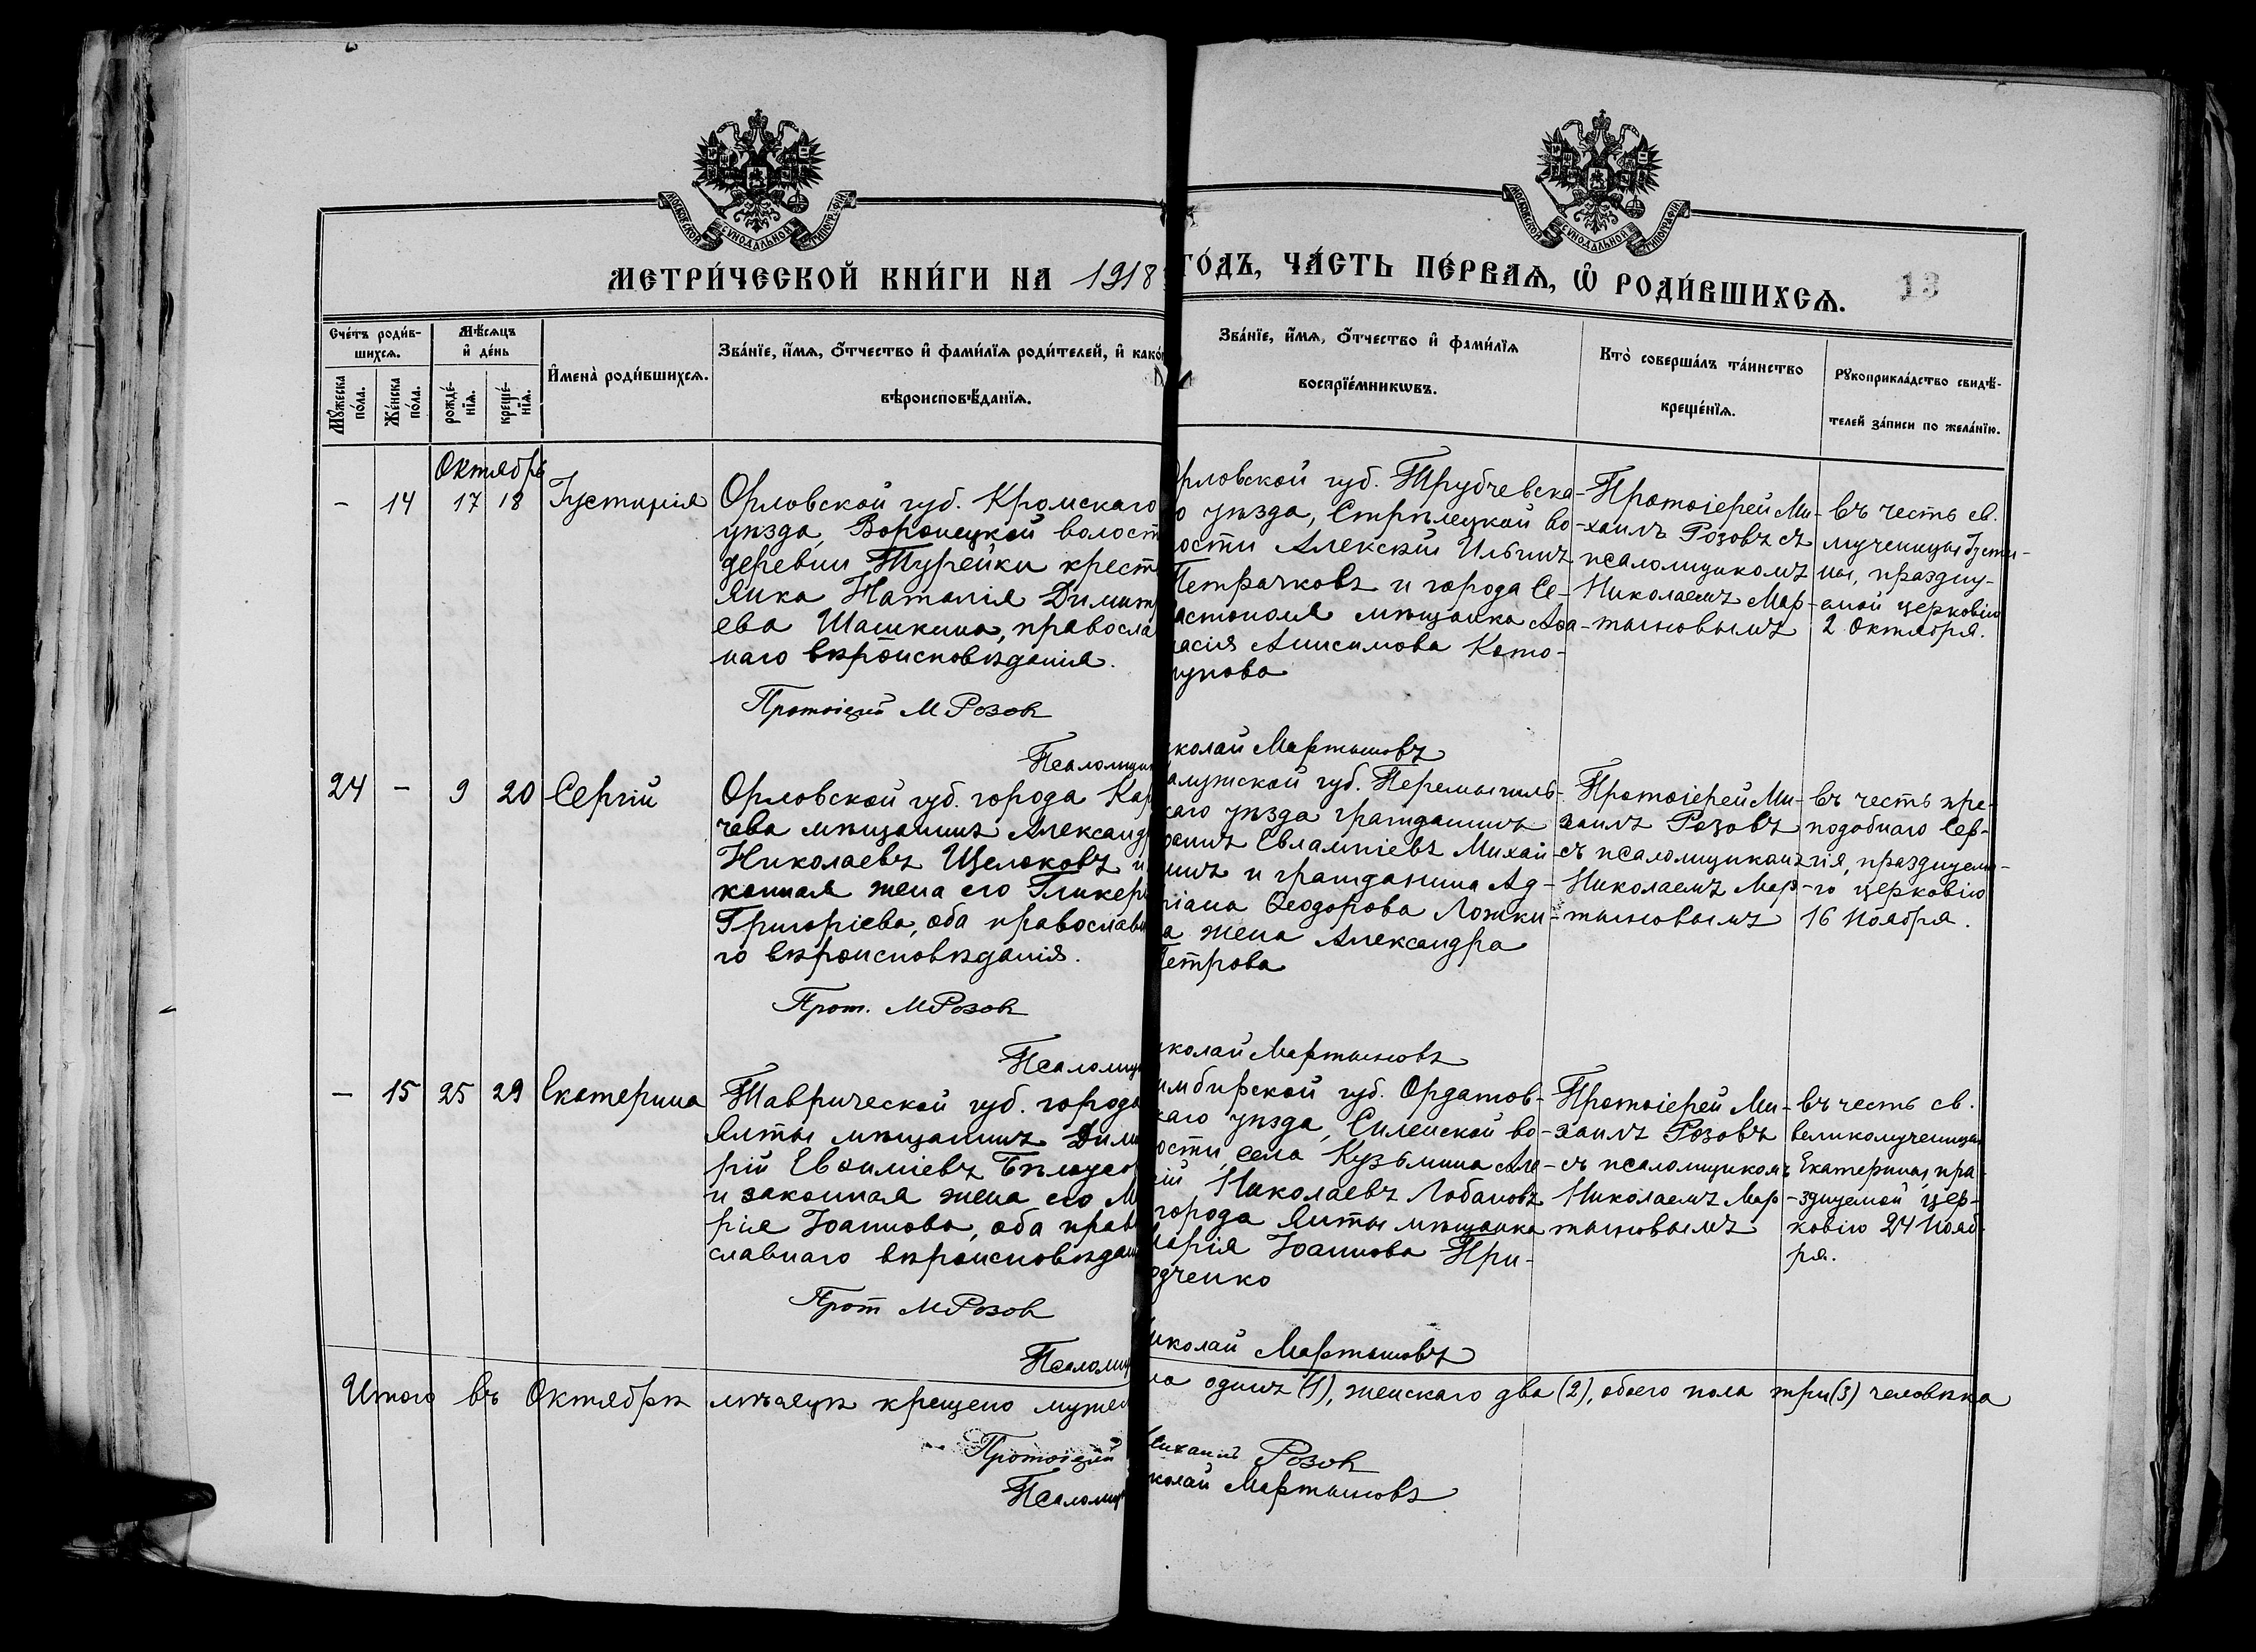 МОСКОВСКОЙ СѴНОДАЛЬНОЙ ТИПОГРАФІИ
МОСКОВСКОЙ СѴНОДАЛЬНОЙ ТИПОГРАФІИ
МЕТРИ́ЧЕСКОЙ КНИ́ГИ НА 1918
ГО́ДЪ, ЧА́СТЬ ПЕ́РВАѦ, Ѡ҆ РОДИ́ВШИХСѦ.
13
Сче́тъ роди́в-
шихсѧ.
Мꙋ́жеска по́ла.
Же́нска по́ла.
Мѣ́сѧцъ
и҆ де́нь
рожде́-
нїѧ.
креще́-
нїѧ.
И҆мена̀ роди́вшихсѧ.
Зва́нїе, и҆́мѧ, ѻ҆́тчество и҆ фами́лїѧ роди́телей, и҆ како́
вѣроисповѣ́данїѧ.
Зва́нїе, и҆́мѧ, ѻ҆́тчество и҆ фами́лїѧ
воспрїе́мникѡвъ.
Кто̀ соверша́лъ та́инство
креще́нїѧ.
Рꙋкоприкла́дство свидѣ́-
телей за́писи по жела́нїю.
Октябрь
- 14 17 18 Іустинія
Орловской губ. Кромскаго
уѣзда, Воронецкой волост
деревни Турейки крест
янка Наталія Димит
ева Шашкина, правосла
наго вѣроисповѣданія.
Протоіерей М Розовъ
Псаломщик
рловской губ. Трубчевска-
о уѣзда, Стрѣлецкой во-
ости Алексѣй Ильинъ
Петрачковъ и города Се-
астополя мѣщанка Ана-
асія Анисимова Кото-
николай Мартыновъ
Протоіерей Ми-
хаилъ Розовъ съ
псаломщикомъ
Николаемъ Мар-
тыновымъ
въ честь св.
мученицы Іусти-
ны, праздну-
емой церковію
2 Октября.
24 - 9 20 Сергій
Орловской губ. города Кар
чева мѣщанинъ Александр
Николаевъ Щелоковъ и
конная жена его Гликері
Григоріева, оба православн
го вѣроисповѣданія.
Прот. М Розовъ
Псаломщ
алужской губ. Перемышль-
каго уѣзда гражданинъ
Евлампіевъ Михай-
инъ и гражданина Ад-
ріана Ѳеодорова Ложки-
а жена Александра
Петрова
иколай Мартыновъ
Протоіерей Ми-
хаилъ Розовъ
съ псаломщикомъ
Николаемъ Мар-
тыновымъ
въ честь пре-
подобнаго Сер-
гія, празднуема-
го церковію
16 Ноября.
- 15 25 29 Екатерина
Таврической губ. города
Ялты мѣщанинъ Дими
рій Евѳиміевъ Бѣлоусо
и законная жена его М
рія Іоаннова, оба прав
славнаго вѣроисповѣдан
Прот М Розовъ
Псаломщ
имбирской губ. Ордатов-
каго уѣзда, Силейской во-
ости, села Кузьмина Але-
сій Николаевъ Лобановъ
города Ялты мѣщанка
Марія Іоаннова При-
одченко
иколай Мартыновъ
Протоіерей Ми-
хаилъ Розовъ
съ псаломщикомъ
Николаемъ Мар-
тыновымъ
въ честь св.
великомученицы
Екатерины, пра-
зднуемой цер-
ковію 24 Нояб-
ря.
Итого въ Октябрѣ мѣсяцѣ крещено мужес
ла одинъ (1), женскаго два (2), обоего пола три (3) человѣка
Протоіерей
Михаилъ Розовъ
Псаломщ
иколай Мартыновъ